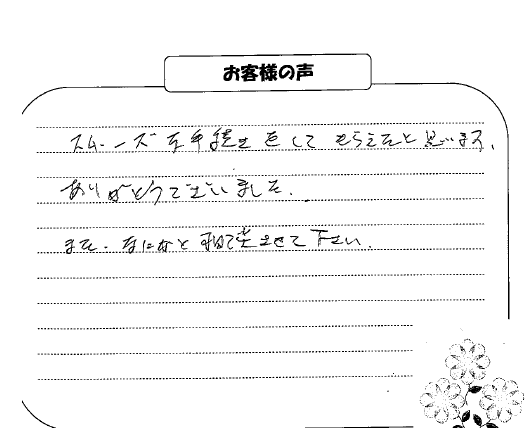 お客様の声
スムーズな手続きをしてもらえたと思います。
ありがとうございました。
また、なにかと相談させて下さい。